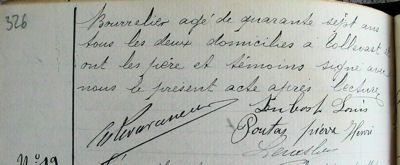 326
Bourrelier agé de quarante sept ans
tous les deux domiciliés a
ont les père et témoins signé avec
nous le présent acte après lecture
Louis
Pontay pierre Hervé
N° 19